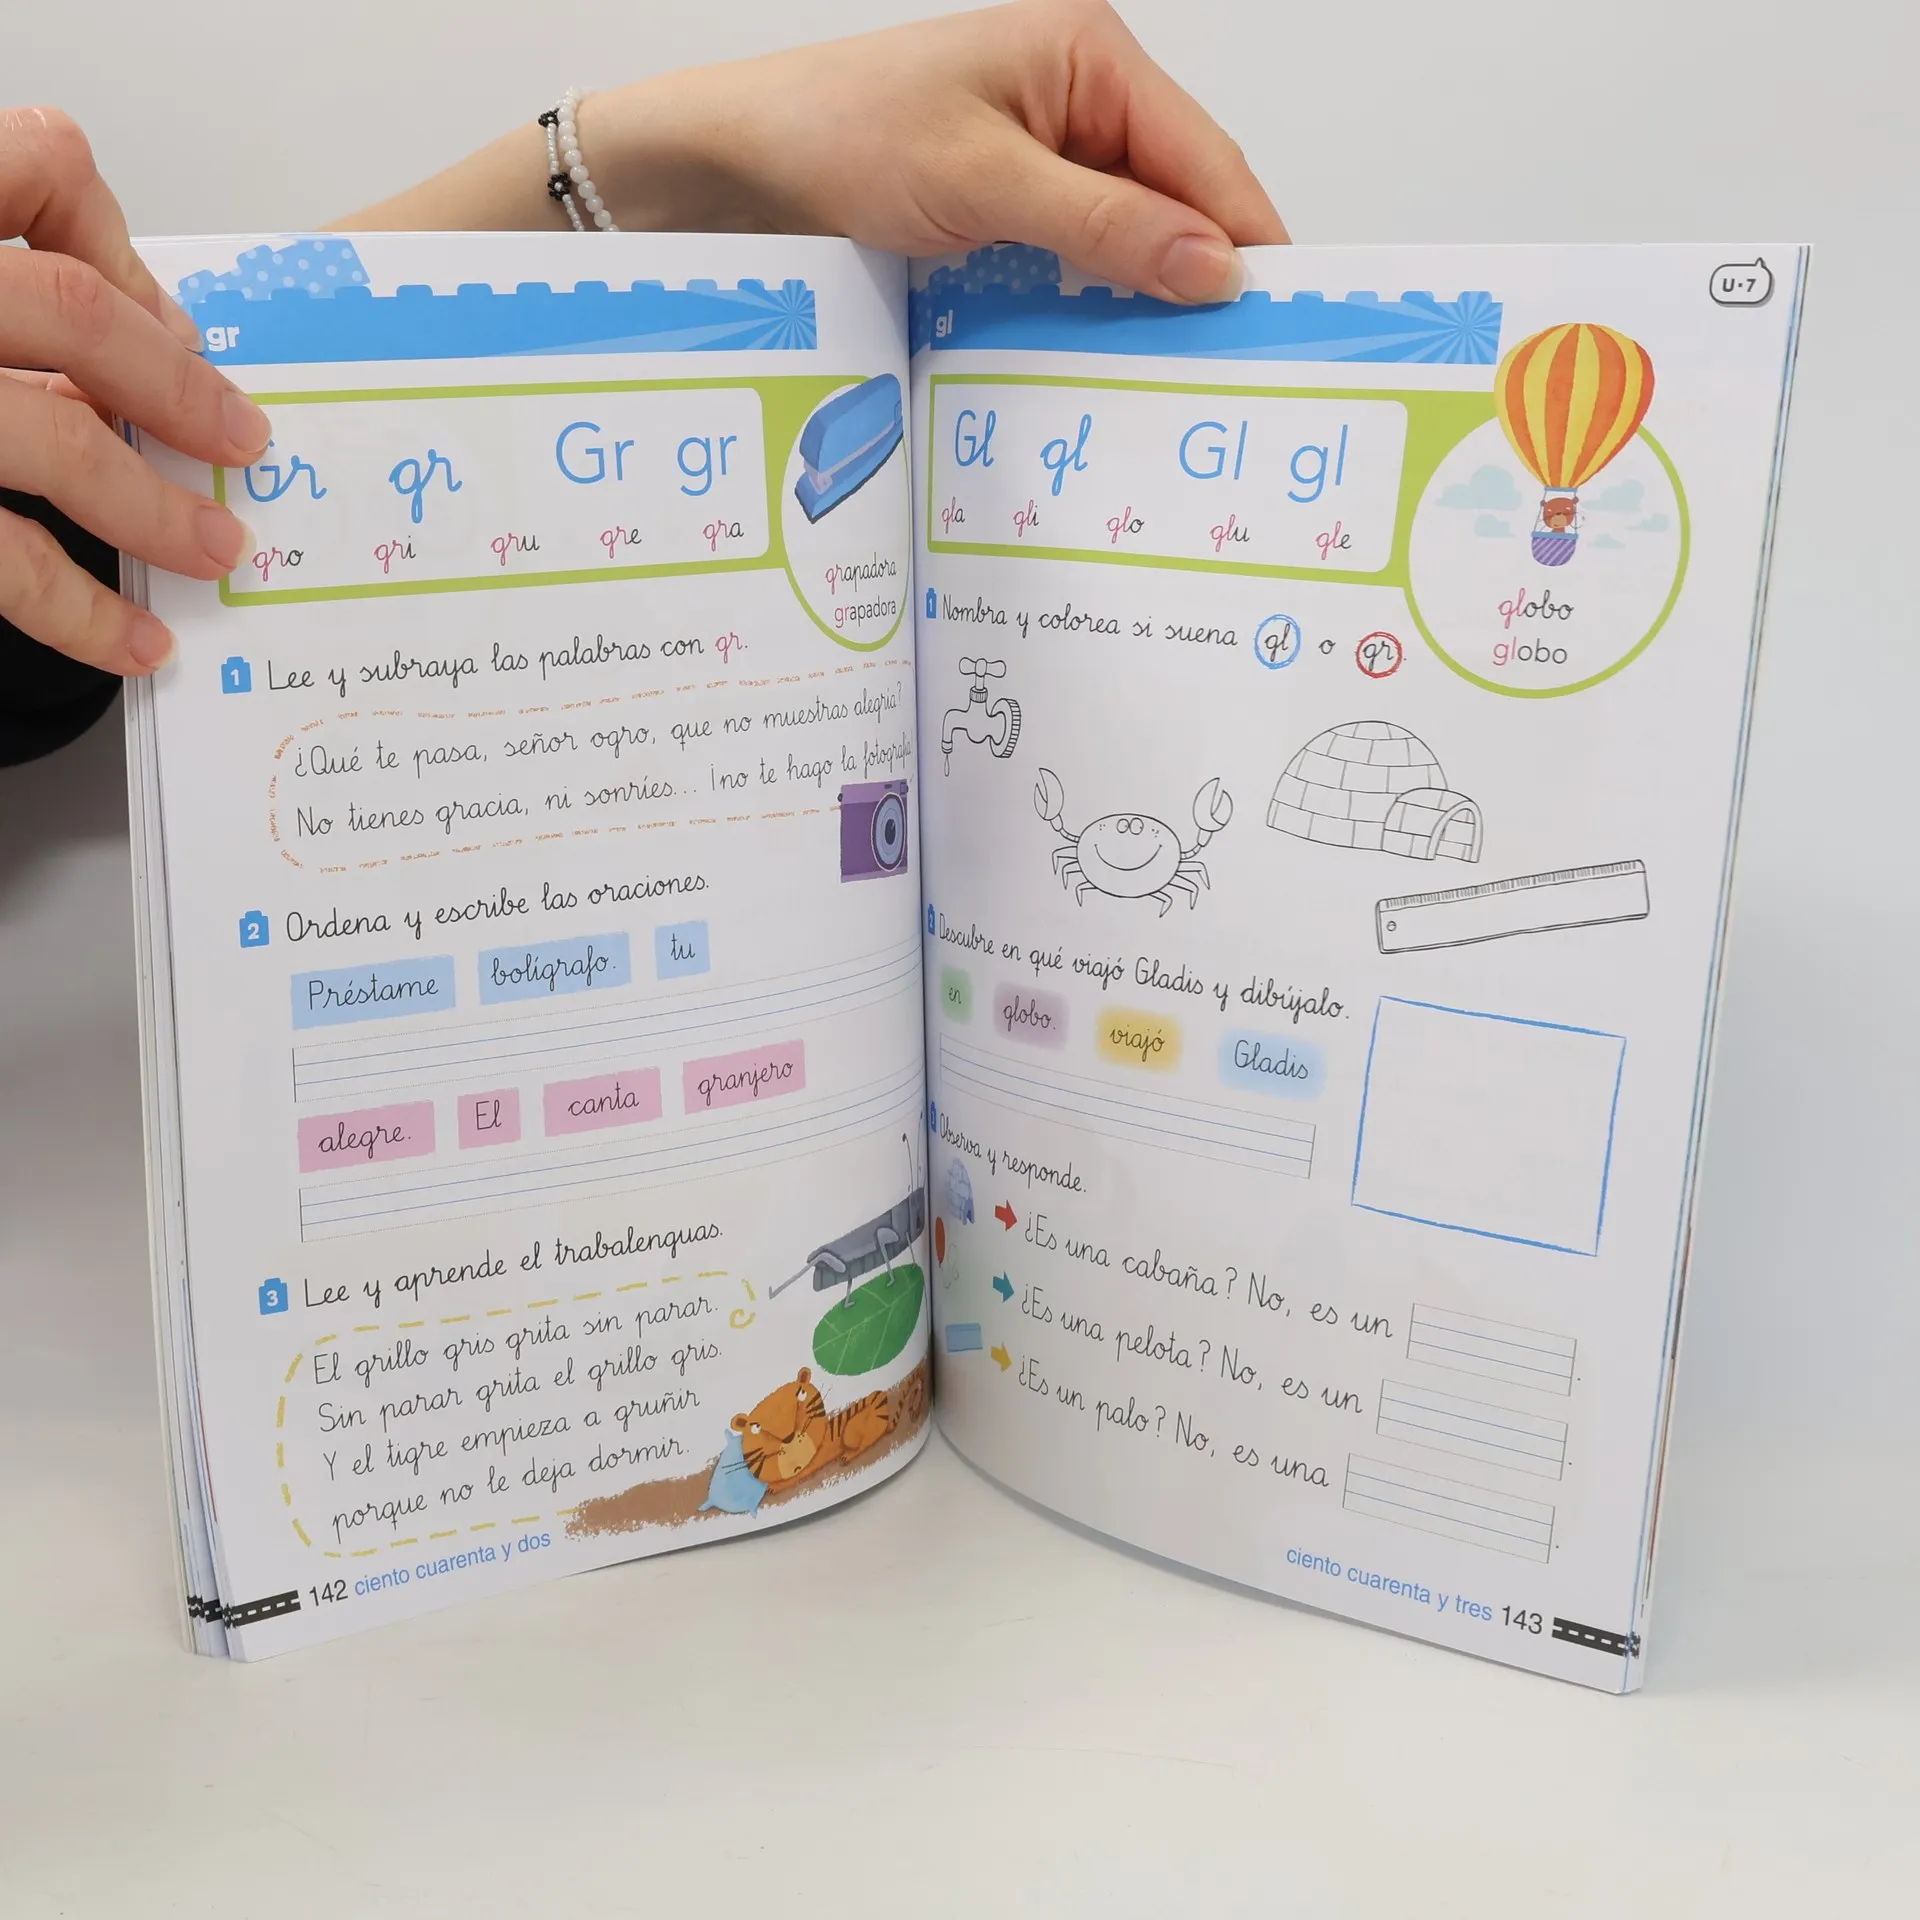 gr
Gr gr Gr gr
gro gri gru gre gra
grapadora
grapadora
1 Lee y subraya las palabras con gr.
¿Qué te pasa, señor ogro, que no muestras alegría?
No tienes gracia, ni sonríes... ¡no te hago la fotografía!
2 Ordena y escribe las oraciones.
Préstame bolígrafo. tu
alegre. El canta granjero
3 Lee y aprende el trabalenguas.
El grillo gris grita sin parar.
Sin parar grita el grillo gris.
Y el tigre empieza a gruñir
porque no le deja dormir.
142 ciento cuarenta y dos
U·7
gl
Gl gl Gl gl
gla gli glo glu gle
globo
globo
1 Nombra y colorea si suena gl o gr.
2 Descubre en qué viajó Gladis y dibújalo.
en globo. viajó Gladis
3 Observa y responde.
¿Es una cabaña? No, es un .
¿Es una pelota? No, es un .
¿Es un palo? No, es una .
ciento cuarenta y tres 143